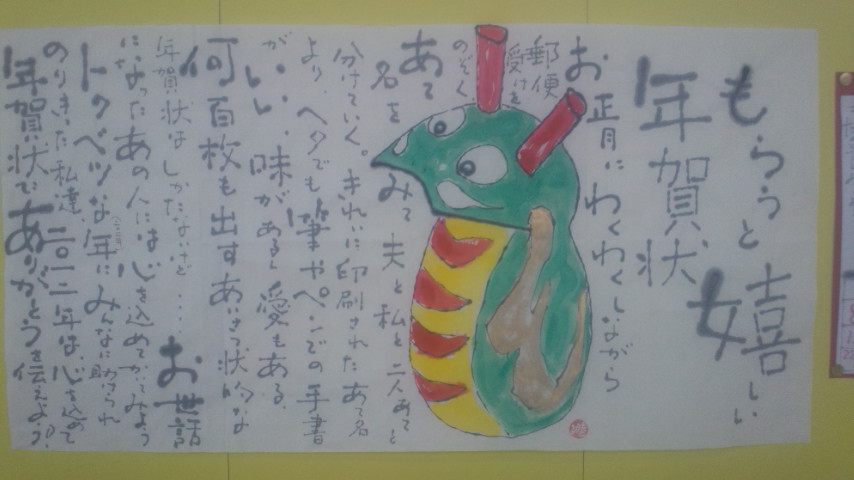 もらうと嬉しい
年賀状、
お正月にわくわくしながら
郵便
受けを
のぞく
あて
名をみて夫と私と二人あてと
分けていく。きれいに印刷されたあて名
より、ヘタでも筆やペンでの手書
がいい、味があるし愛もある、
何百枚も出すあいさつ状的な
年賀状はしかたないけど・・・お世話
になったあの人には心を込めてかいてみよう
トクベツな年にみんなに助けられ
のりきった私達、二〇一二年は心を込めて
年賀状でありがとうを伝えよう!?